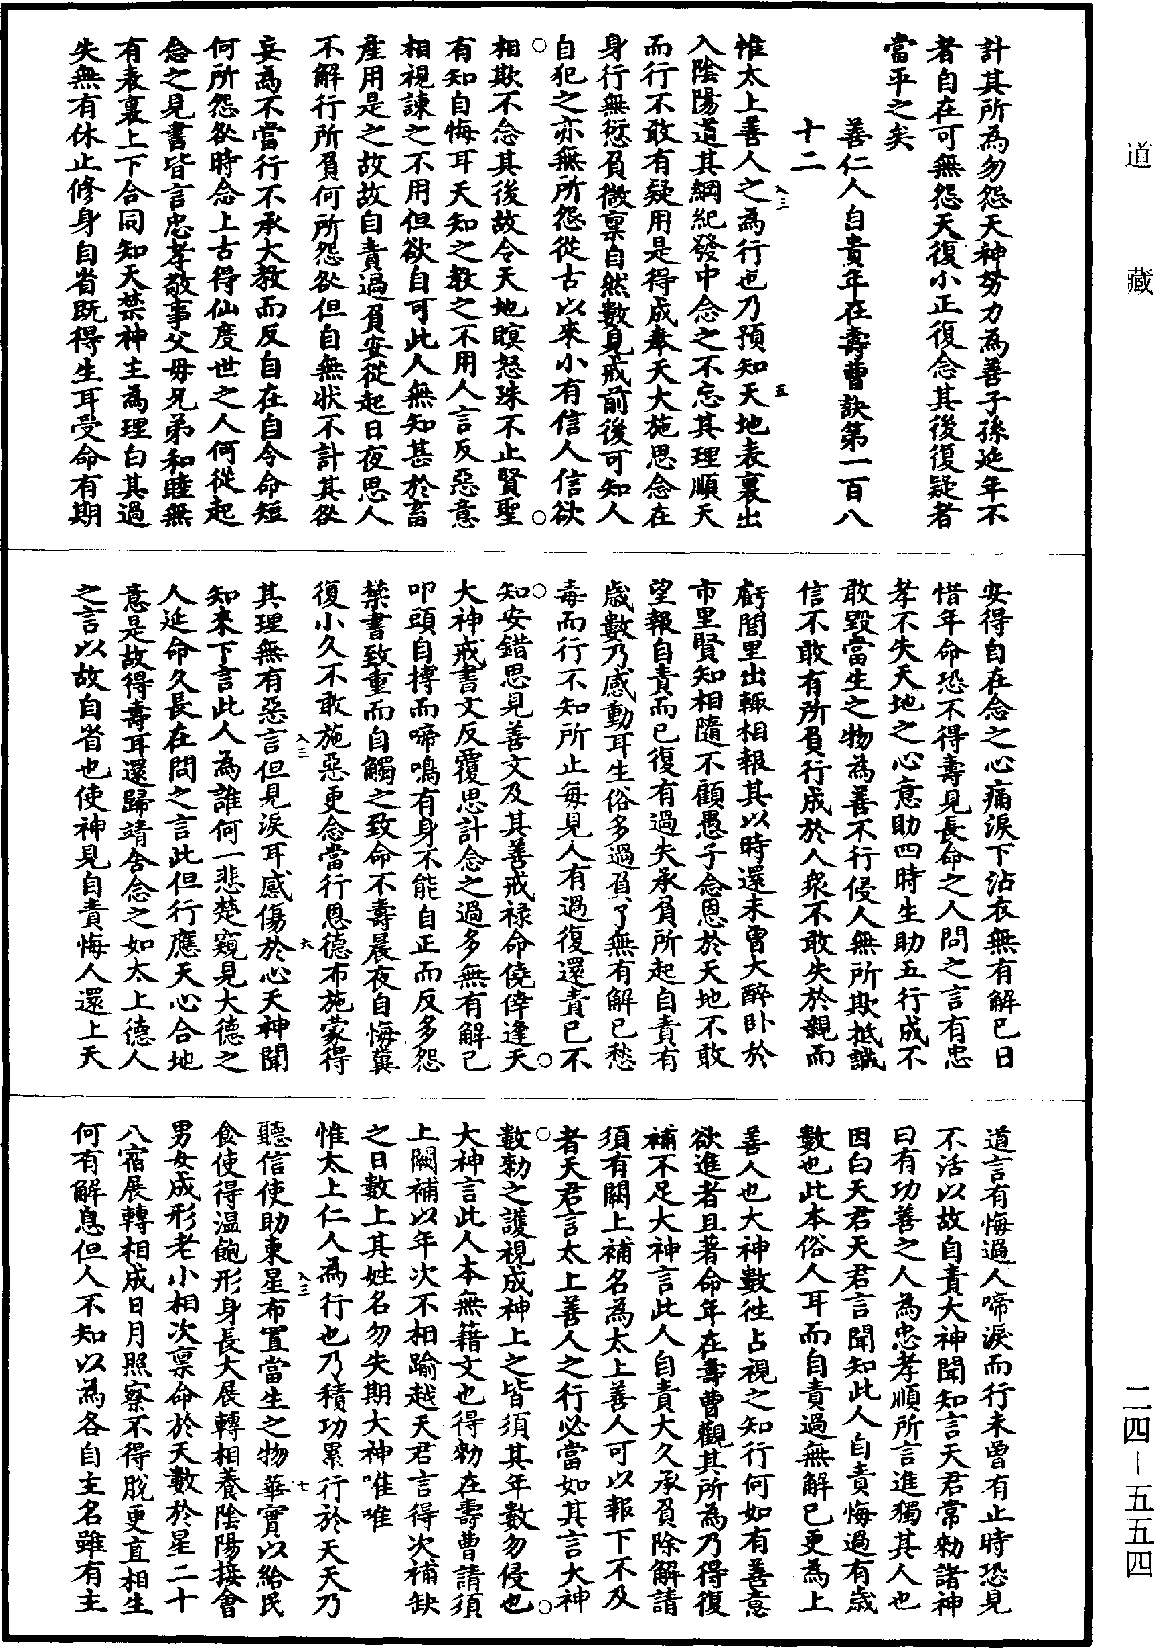 道藏
計其所為勿怨天神努力為善子孫延年不
者自在可無怨天復小正復念其後復疑者
當平之矣
善仁人自貴年在壽曹訣第一百八
十二
惟太上善人之為行也乃預知天地表裏出
入陰陽道其綱紀發中念之不忘其理順天
而行不敢有疑用是得成奉天大施恩念在
身行無愆負微稟自然數見戒前後可知人
自犯之亦無所怨從古以來小有信人信欲
相欺不念其後故令天地瞑怒殊不止賢聖
有知自悔耳天知之教之不用人言反惡意
相視諫之不用但欲自可此人無知甚於畜
產用是之故故自責過負安從起日夜思人
不解行所負何所怨欲但自無狀不計其欲
妄為不當行不承大教而反自在自令命短
何所怨欲時念上古得仙度世之人何從起
念之見書皆言忠孝敬事父母兄弟和睦無
有表裏上下合同知天禁神主為理白其過
失無有休止修身自省既得生耳受命有期
安得自在念之心痛淚下沾衣無有解已日
惜年命恐不得壽見長命之人問之言有忠
孝不失天地之心意助四時生助五行成不
敢毀當生之物為善不行侵人無所欺抵誠
信不敢有所負行成於人衆不敢失於親而
虧閭里出輒相報其以時還未曾大醉卧於
市里賢知相隨不顧愚子念恩於天地不敢
望報自責而已復有過失承負所起自責有
歲數乃感動耳生俗多過負了無有解已愁
毒而行不知所止每見人有過復還責已不
知安錯思見善文及其善戒祿命僥倖逢天
大神戒書文反覆思計念之過多無有解已
叩頭自搏而啼鳴有身不能自正而反多怨
禁書致重而自觸之致命不壽晨夜自悔冀
復小久不敢施惡更念當行恩德布施蒙得
其理無有惡言但見淚耳感傷於心天神聞
知來下言此人為誰何一悲楚窺見大德之
人延命久長在問之言此但行應天心合地
意是故得壽耳還歸靖舍念之如太上德人
之言以故自省也使神見自責悔人還上天
道言有悔過人啼淚而行未曾有止時恐見
不活以故自責大神聞知言天君常勑諸神
曰有功善之人為忠孝順所言進獨其人也
因白天君天君言聞知此人自責悔過有歲
數也此本俗人耳而自責過無解已更為上
善人也大神數徃占視之知行何如有善意
欲進者且著命年在壽曹觀其所為乃得復
補不足大神言此人自責大久承負除解請
須有闕上補名為太上善人可以報下不及
者天君言太上善人之行必當如其言大神
數勑之護視成神上之皆須其年數勿侵也
大神言此人本無籍文也得勑在壽曹請須
上闕補以年次不相踰越天君言得次補缺
之日數上其姓名勿失期大神唯唯
惟太上仁人為行也乃積功累行於天天乃
聽信使助東星布置當生之物華實以給民
食使得溫飽形身長大展轉相養陰陽接會
男女成形老小相次稟命於天數於星二十
八宿展轉相成日月照察不得脫更直相生
何有解息但人不知以為各自主名雖有主
入三
五
入三
六
入三
七
二四－五五四